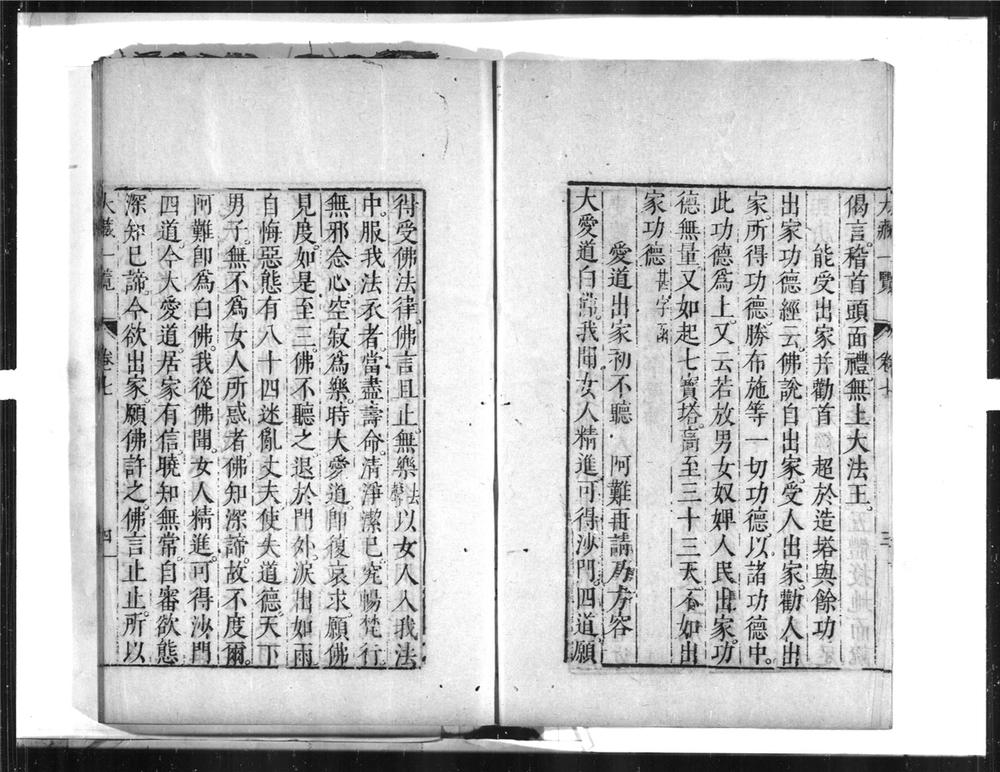 大藏一覽 卷七 三
偈言。稽首頭面禮。無上大法王。
能受出家并勸首 超於造塔與餘功
出家功德經云。佛說自出家。受人出家。勸人出
家。所得功德。勝布施等一切功德。以諸功德中。
此功德爲上。又云。若放男女奴婢人民出家。功
德無量。又如起七寶塔。高至三十三天。不如出
家功德 甚字函
愛道出家初不聽 阿難再請乃方容
大愛道白言。我聞女人精進。可得沙門。四道。願
得受佛法律。佛言。且止。無樂法以女人入我法
中。服我法衣者。當盡壽命。清淨潔已。究暢梵行。
無邪念心。空寂爲樂。時大愛道。即復哀求。願佛
見度。如是至三。佛不聽之。退於門外。淚出如雨
自悔惡態有八十四迷亂丈夫使失道德。天下
男子。無不爲女人所惑者。佛知深諦。故不度爾。
阿難即爲白佛。我從佛聞。女人精進。可得沙門
四道。今大愛道居家有信。曉知無常。自審欲態
深知已諦。今欲出家。願佛許之。佛言止止。所以
大藏一覽 卷七 四